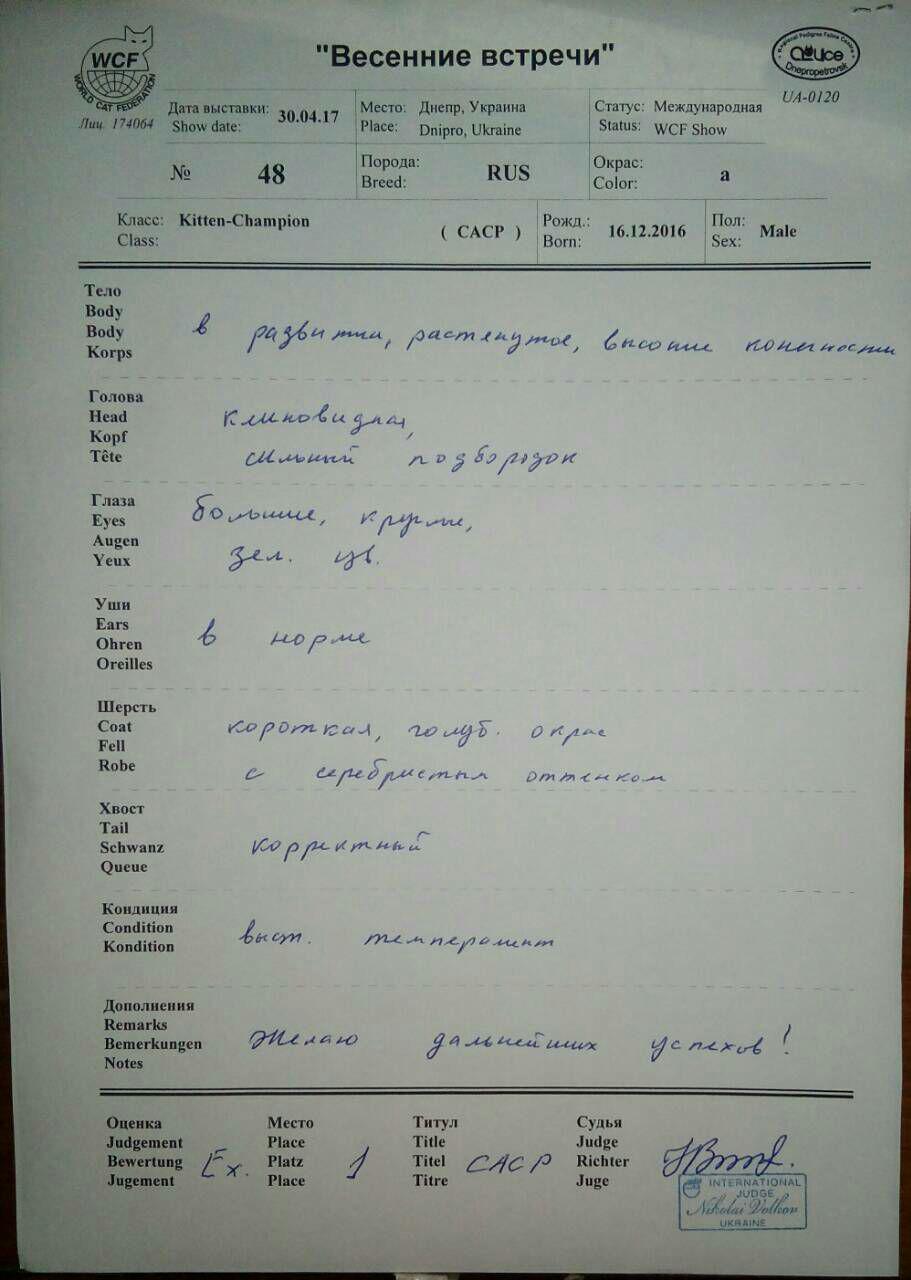 WCF
WORLD CAT FEDERATION
Лиц. 174064
"Весенние встречи"
Regional Pedigree Feline Centre
Dnepropetrovsk
UA-0120
Дата выставки: 30.04.17
Show date:
Место: Днепр, Украина
Place: Dnipro, Ukraine
Статус: Международная
Status: WCF Show
№ 48
Порода: RUS
Breed:
Окрас: a
Color:
Класс: Kitten-Champion ( CACP )
Class:
Рожд.: 16.12.2016
Born:
Пол: Male
Sex:
Тело
Body
Body
Korps
в развитии, растянутое, высокие конечности
Голова
Head
Kopf
Tête
клиновидная,
сильный подбородок
Глаза
Eyes
Augen
Yeux
большие, круглые,
зел. цв.
Уши
Ears
Ohren
Oreilles
в норме
Шерсть
Coat
Fell
Robe
короткая, голуб. окрас
с серебристым оттенком
Хвост
Tail
Schwanz
Queue
корректный
Кондиция
Condition
Kondition
выст. темперамент
Дополнения
Remarks
Bemerkungen
Notes
Желаю дальнейших успехов!
Оценка
Judgement
Bewertung
Jugement
Ex.
Место
Place
Platz
Place
1
Титул
Title
Titel
Titre
CACP
Судья
Judge
Richter
Juge
INTERNATIONAL
JUDGE
Nikolai Volkov
UKRAINE